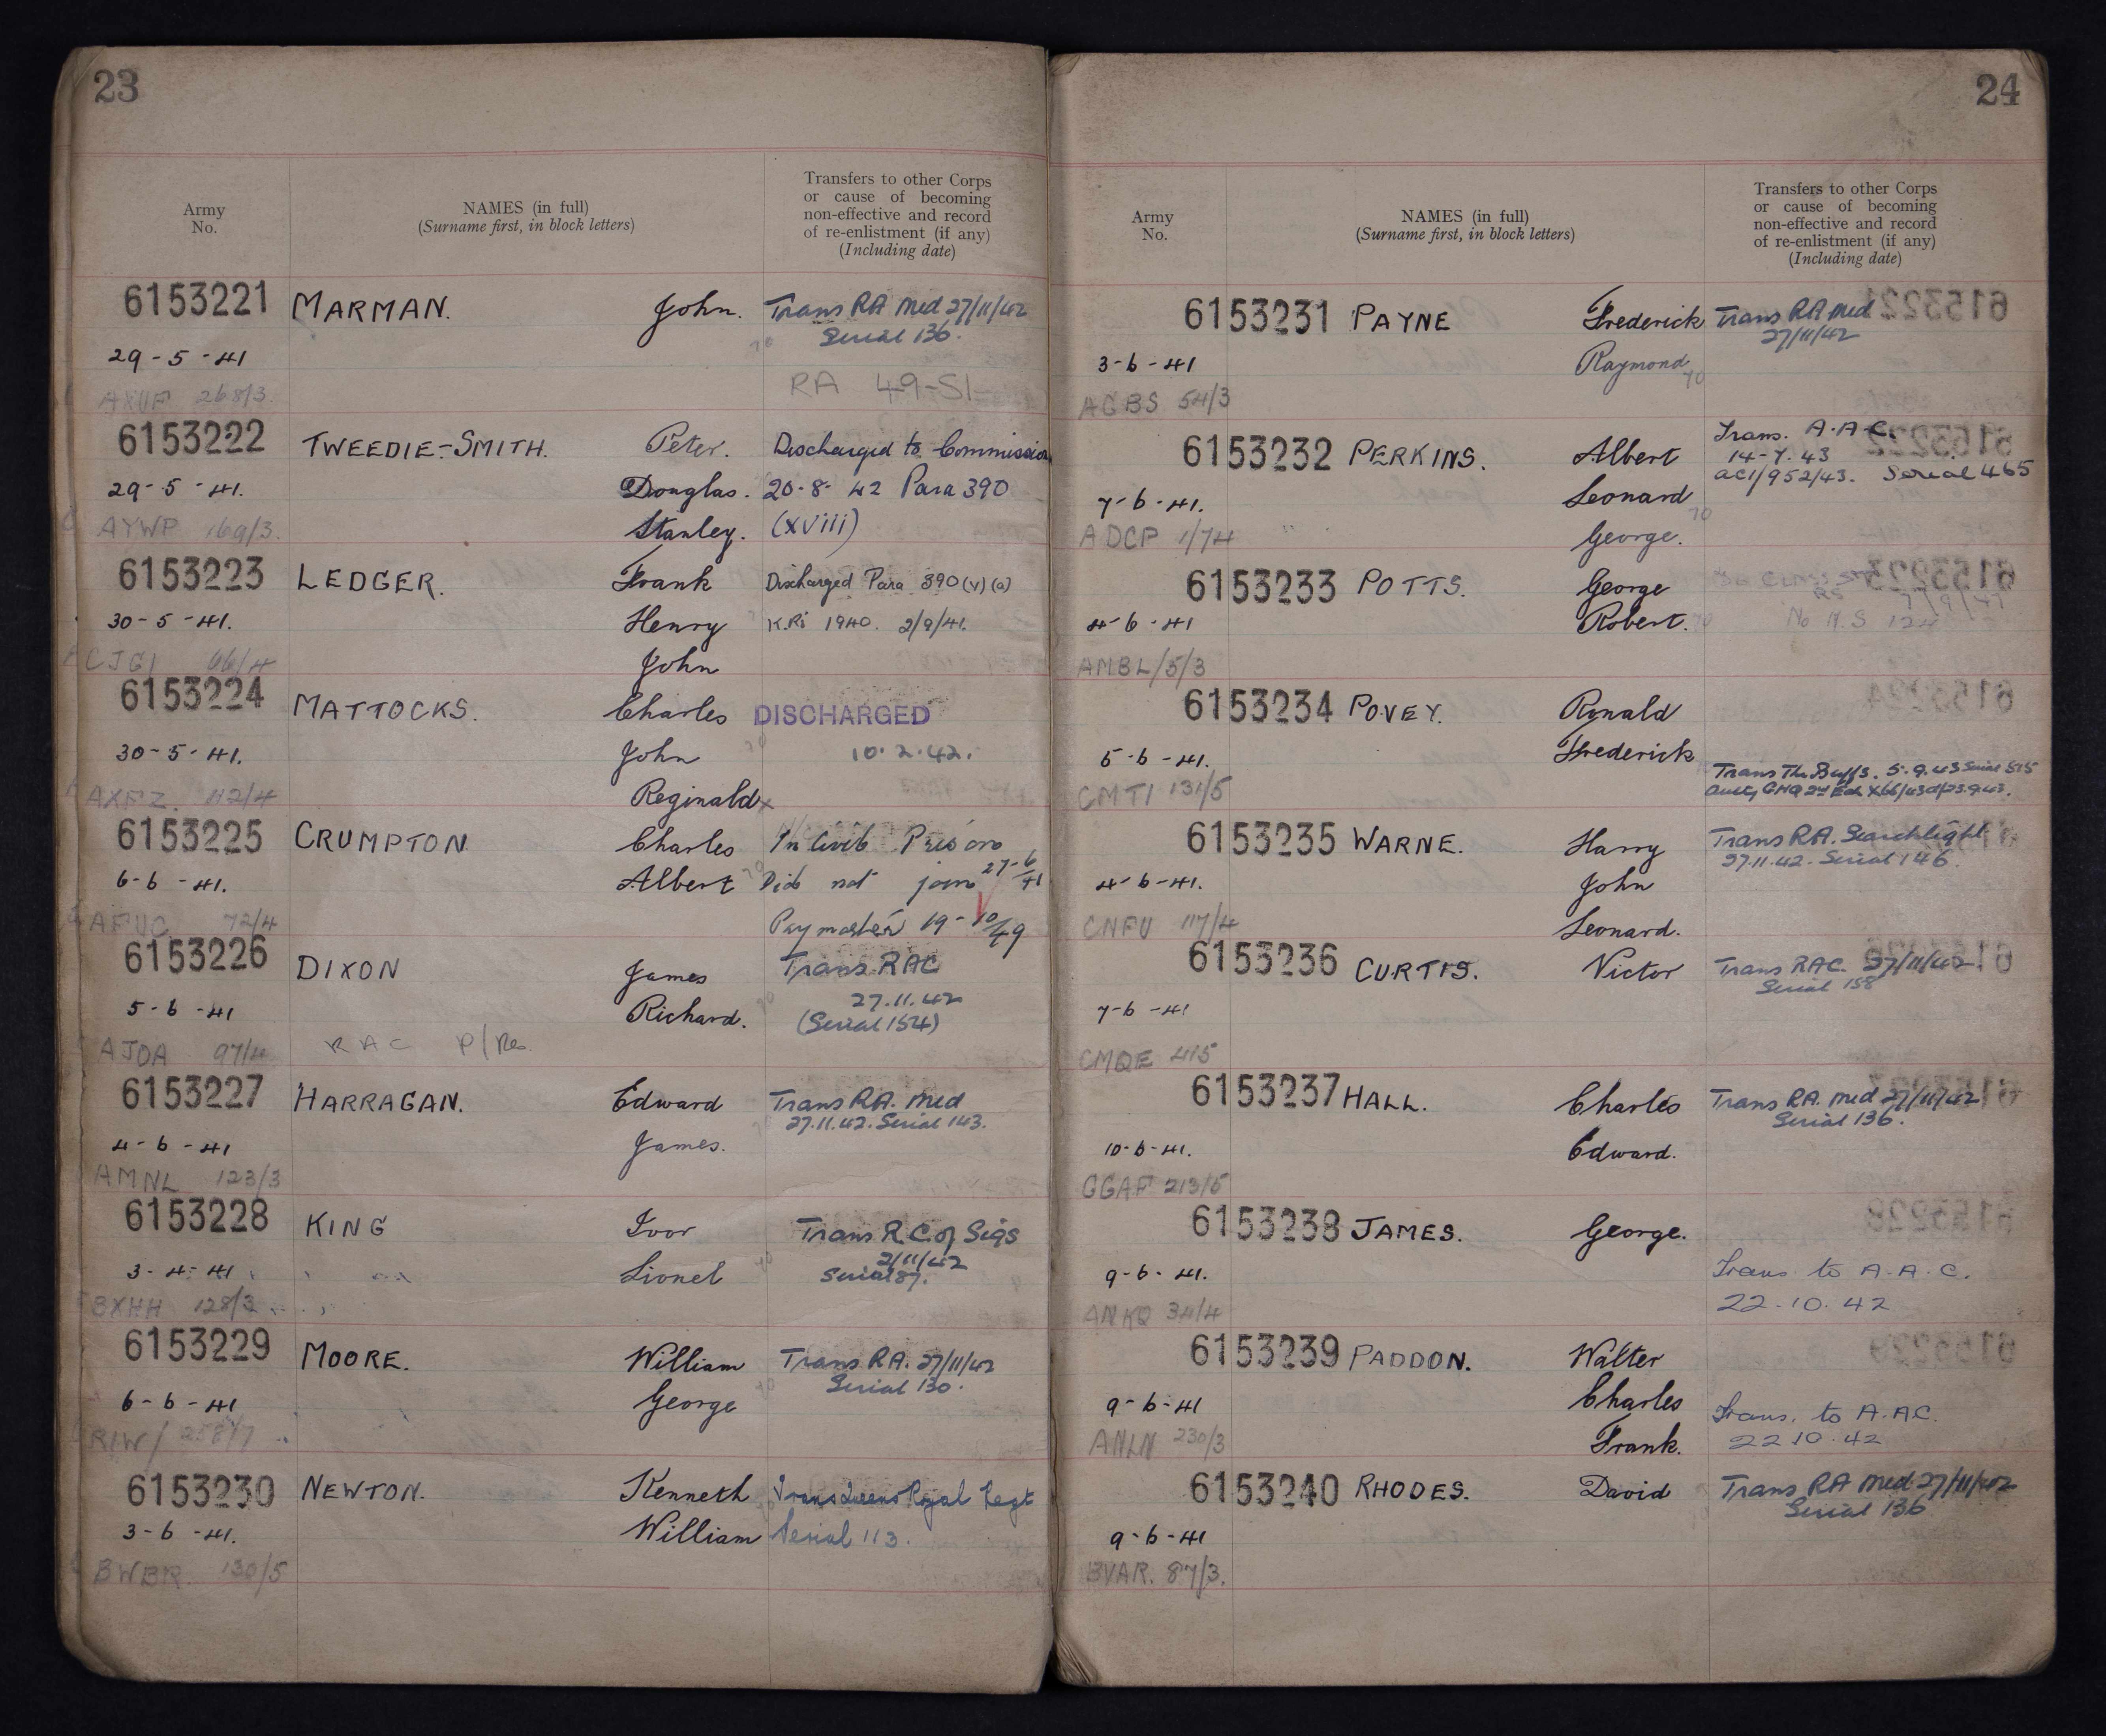 23
Army
No.
NAMES (in full)
(Surname first, in block letters)
Transfers to other Corps
or cause of becoming
non-effective and record
of re-enlistment (if any)
(Including date)
6153221 MARMAN. John. Trans RA Med 27/11/42
Serial 136.
29-5-41
RA 49-51
268/3
6153222 TWEEDIE-SMITH. Peter. Discharged to Commission
29-5-41. Douglas. 20-8-42 Para 390
AYWP 169/3. Stanley. (XVIII)
6153223 LEDGER. Frank Discharged Para 390 (v) (a)
30-5-41. Henry K.Ri 1940. 2/9/41.
CJGI 66/4 John
6153224 MATTOCKS. Charles DISCHARGED
30-5-41. John 10.2.42.
AXFZ. 112/4 Reginald x
6153225 CRUMPTON Charles In Civil Prison
6-6-41. Albert Did not join 27-6/41
AFUC 72/4 Paymaster 19-10/49
6153226 DIXON James Trans RAC
27.11.42
5-6-41 Richard. (Serial 154)
AJOA 97/4 RAC P/Res
6153227 HARRAGAN. Edward Trans RA. Med
27.11.42. Serial 143.
4-6-41 James.
AMNL 123/3
6153228 KING Ivor Trans R.C. of Sigs
2/11/42
3-4-41 Lionel Serial 87.
BXHH 128/3
6153229 MOORE. William Trans RA. 27/11/42
Serial 130.
6-6-41 George
258/7
6153230 NEWTON. Kenneth Trans Queens Royal Regt
3-6-41. William Serial 113.
BWBR. 130/5
24
Army
No.
NAMES (in full)
(Surname first, in block letters)
Transfers to other Corps
or cause of becoming
non-effective and record
of re-enlistment (if any)
(Including date)
6153231 PAYNE Frederick Trans RA Med
27/11/42
3-6-41 Raymond
AGBS 54/3
6153232 PERKINS. Albert Trans. A.A.C.
14-7.43
AC1/952/43. Serial 465
7-6-41. Leonard
ADCP 1/74 George.
6153233 POTTS. George
4-6-41 Robert.
AMBL/5/3
6153234 POVEY. Ronald
5-6-41. Frederick
Trans The Buffs. 5.9.43 Serial 515
CMTI 131/5 Auty GHQ 2nd Ech X66/43 d/23.9.43.
6153235 WARNE. Harry Trans RA. Searchlight
27.11.42. Serial 146.
4-6-41. John
CNFU 117/4 Leonard.
6153236 CURTIS. Victor Trans RAC. 27/11/42
Serial 158
7-6-41
CMQE 415
6153237 HALL. Charles Trans RA. Med 27/11/42
Serial 136.
10-6-41. Edward.
GGAF 213/5
6153238 JAMES. George.
9-6-41. Trans to A.A.C.
ANKQ 34/4 22.10.42
6153239 PADDON. Walter
9-6-41 Charles Trans. to A.A.C.
ANLN 230/3 Frank. 22 10.42
6153240 RHODES. David Trans RA Med 27/11/42
Serial 136
9-6-41
BVAR. 87/3.